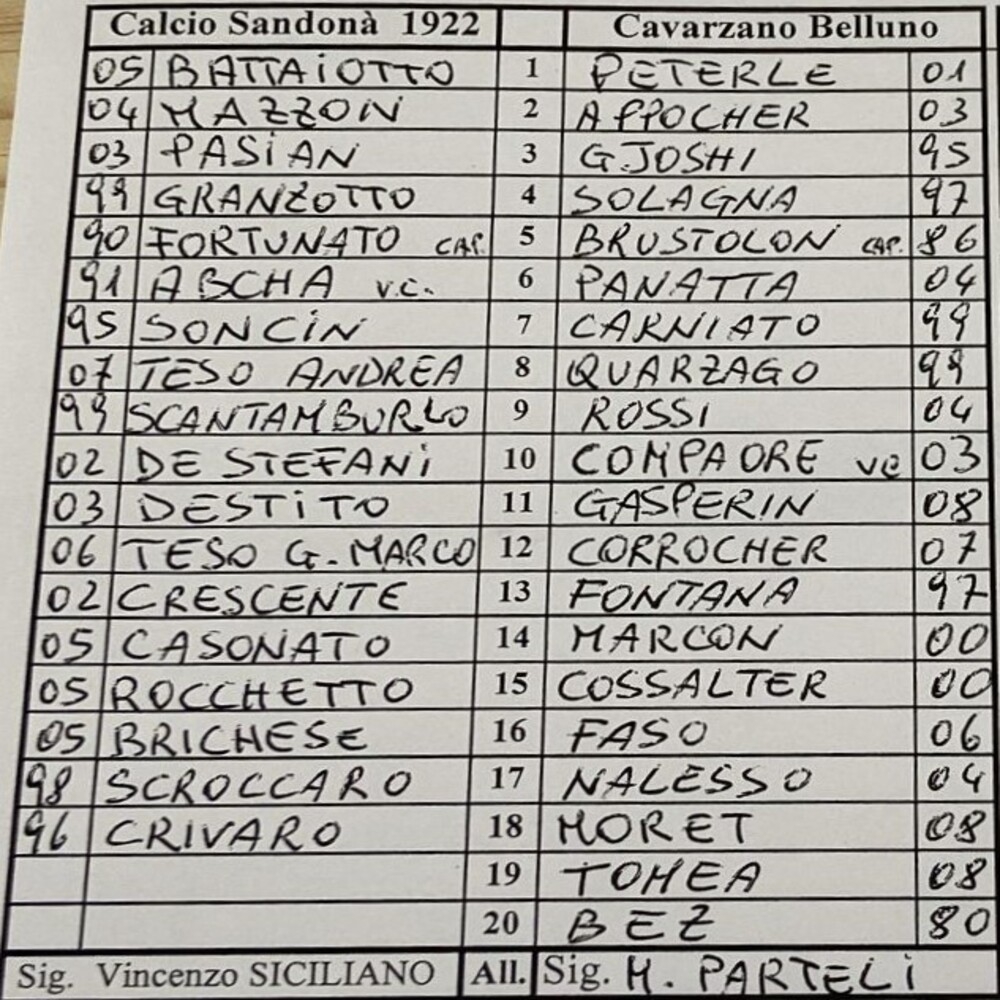 Calcio Sandonà 1922 Cavarzano Belluno
05 BATTAiOTTO 1 PETERLE 01
04 MAZZON 2 APPOCHER 03
03 PASiAN 3 GJOSHI 95
99 GRANZOTTO 4 SOLAGNA 97
90 FORTUNATO CAP. 5 BRUSTOLON CAP. 86
91 ABCHA V.C. 6 PANATTA 04
95 SONCiN 7 CARNIATO 99
07 TESO ANDREA 8 QUARZAGO 99
99 SCANTAMBURLO 9 ROSSI 04
02 DE STEFANi 10 COMPAORE VC 03
03 DESTiTO 11 GASPERIN 08
06 TESO G. MARCO 12 CORROCHER 07
02 CRESCENTE 13 FONTANA 97
05 CASONATO 14 MARCON 00
05 ROCCHETTO 15 COSSALTER 00
05 BRICHESE 16 FASO 06
98 SCROCCARO 17 NALESSO 04
96 CRIVARO 18 MORET 08
19 TOMEA 08
20 BEZ 80
Sig. Vincenzo SICILIANO All. Sig. M. PARTELi